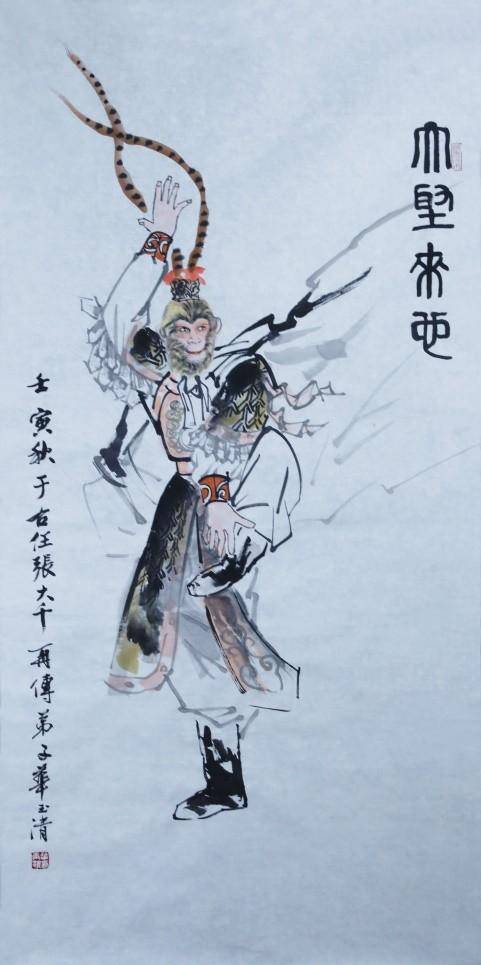 大聖來也
壬寅秋于古任張大千再傳弟子華玉清